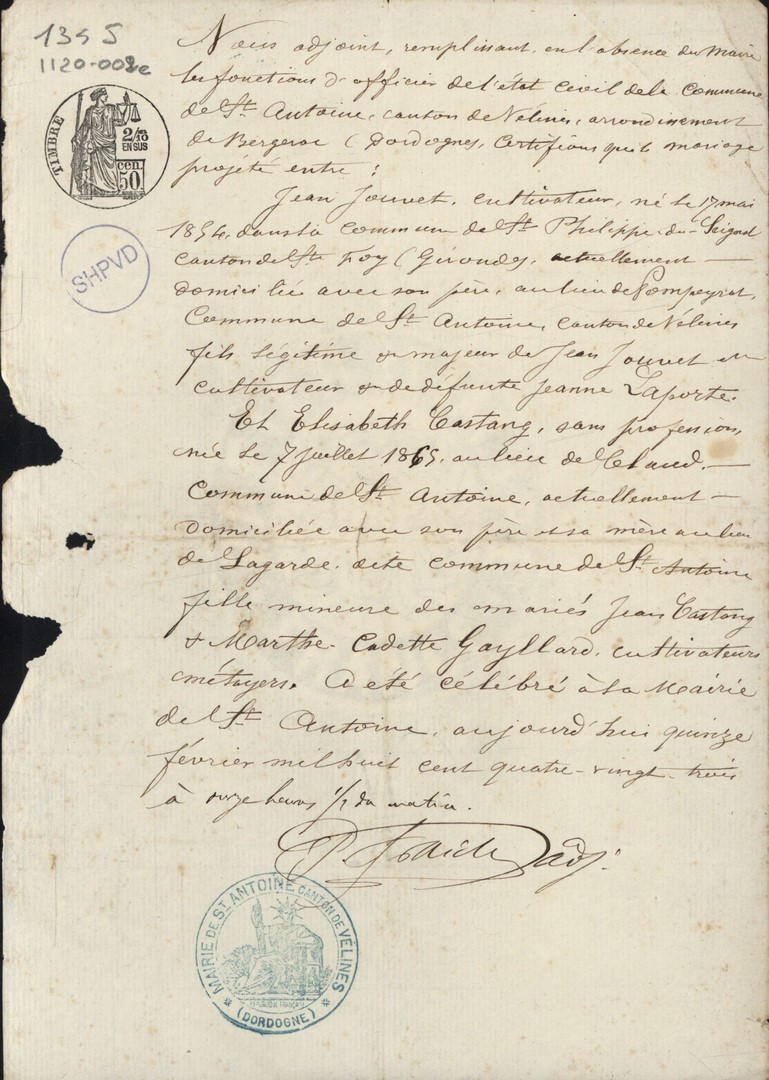 1345 J
1120-002e
TIMBRE
2/10
EN SUS
cen.
50
SHPVD
Nous adjoint, remplissant, en l'absence du Maire
les fonctions d'officier de l'état civil de la Commune
de St Antoine, canton de Vélines, arrondissement
de Bergerac (Dordogne), Certifions que le mariage
projété entre :
Jean Jouvet, cultivateur, né le 17 mai
1854, dans la commune de St Philippe-du-Seignal
canton de Ste Foy (Gironde), actuellement —
domicilié avec son père, au lieu de Pompeyrat,
Commune de St Antoine, canton de Vélines
fils légitime & majeur de Jean Jouvet
cultivateur & de défunte Jeanne Laporte.
Et Elisabeth Castang, sans profession,
née le 7 juillet 1865, au lieu de Claud, —
Commune de St Antoine, actuellement —
domiciliée avec son père et sa mère au lieu
de Lagarde, dite commune de St Antoine
fille mineure des mariés Jean Castang
& Marthe Cadette Gayllard, cultivateurs
métayers. A été célébré à la Mairie
de St Antoine, aujourd'hui quinze
février mil huit cent quatre-vingt-trois
à onze heures 1/2 du matin.
adj.
MAIRIE DE ST ANTOINE CANTON DE VÉLINES
RÉPUBLIQUE FRANÇAISE
(DORDOGNE)